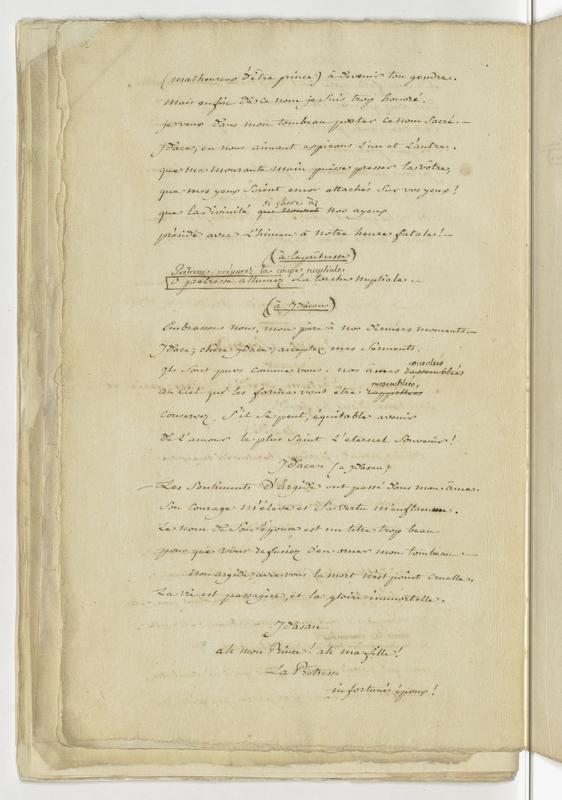 (malheureux d'être prince) à devenir ton gendre.
mais enfin de ce nom je suis trop honoré.
je veux dans mon tombeau porter ce nom sacré. —
Jdace, en nous aimant expirons l'un et l'autre.
que ma mourante main puisse presser la vôtre,
que mes yeux soient encor attachés sur vos yeux!
si chere à
que la divinité que nos ayeux
préside avec L'himen à notre heure fatale! —
(à la prêtresse)
Prêtresse, préparez la coupe nuptiale
O prêtresse allumez La torche nuptiale —
(à Jdasan)
Embrassons nous, mon père à nos derniers moments —
Jdace, chère jdace, acceptez mes serments.
ils sont purs comme vous. nos âmes rassemblées
au ciel qui les forma vont être
rassemblées,
conservez, s'il se peut, équitable avenir
de L'amour le plus saint L'eternel souvenir!
Jdace. (a jdasan)
— Les sentiments D'argide ont passé dans mon âme.
Son courage m'éleve et sa vertu m'enflamme.
Le nom de son épouse est un titre trop beau
pour que vous refusiez d'en orner mon tombeau. —
non argide, avec vous la mort n'est point cruelle.
La vie est passagère, et la gloire immortelle.
Jdasan
ah mon Prince! ah ma fille!
La Prêtresse
infortunés époux!